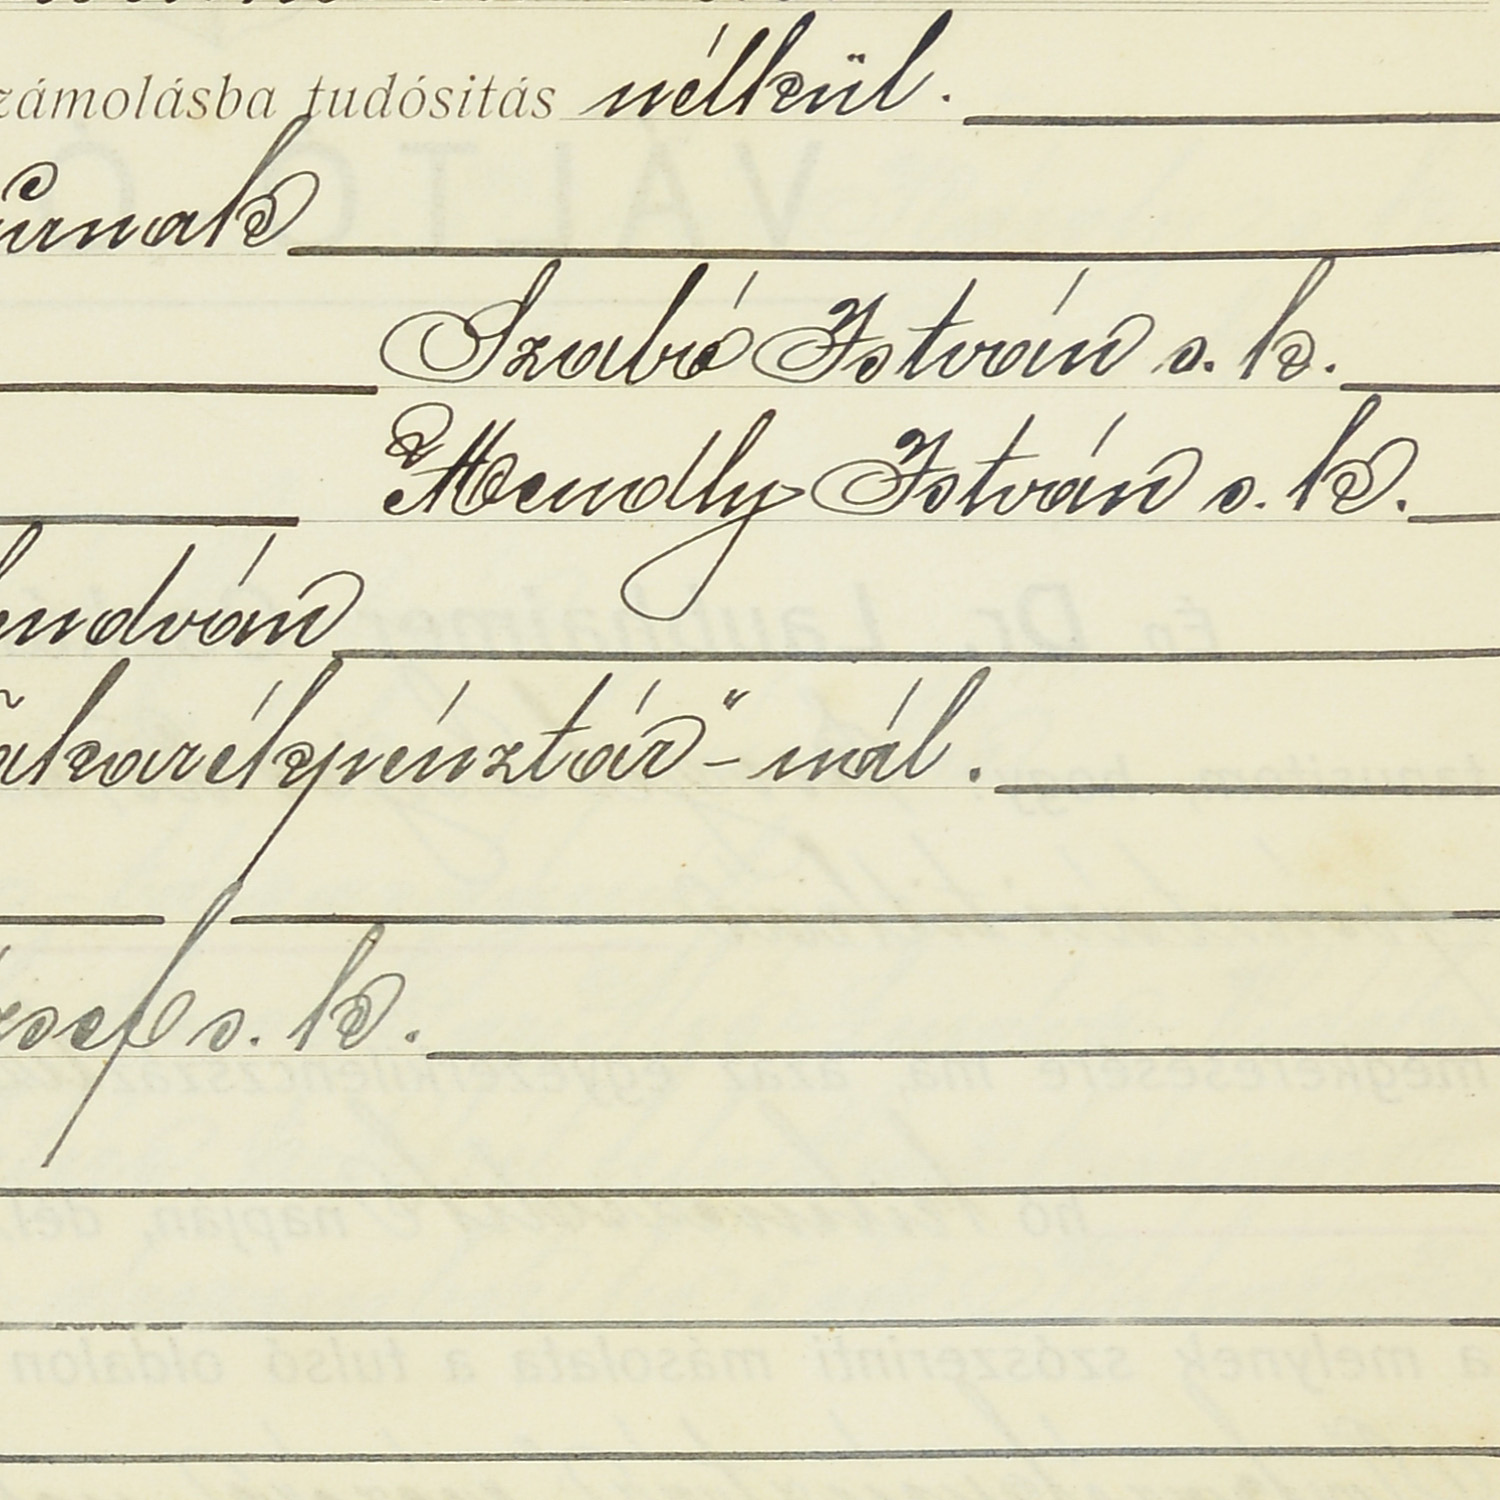 zámolásba tudósitás nélkül.
úrnak
Szabó István s. k.
Hendly István s. k.
endván
akarékpénztár"-nál.
zsef s. k.